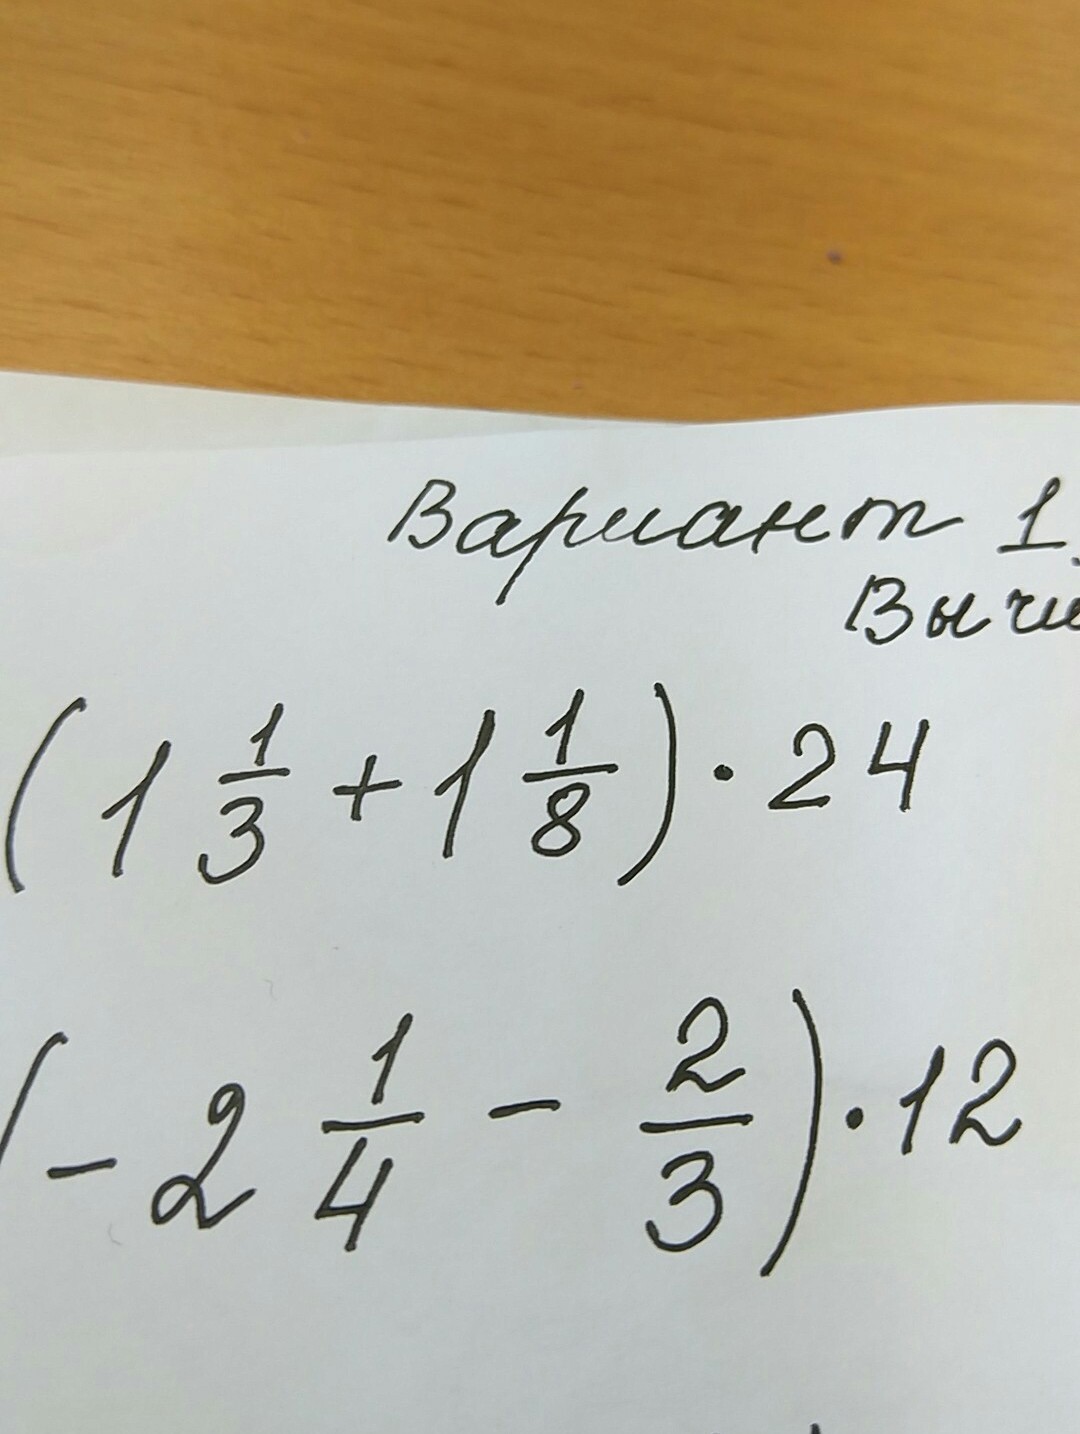 Вариант 1.
Вычи
(1 1/3 + 1 1/8) · 24
(- 2 1/4 - 2/3) · 12